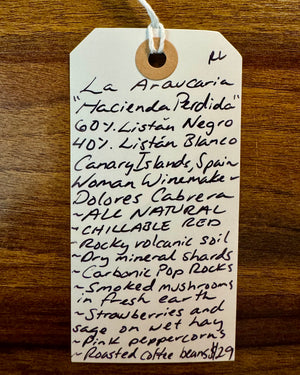 La Araucaria
"Hacienda Perdida"
60% Listán Negro
40% Listán Blanco
Canary Islands, Spain
Woman Winemake-
Dolores Cabrera
~ALL NATURAL
~CHILLABLE RED
~Rocky volcanic soil
~Dry mineral shards
~Carbonic Pop Rocks
~Smoked mushrooms
in fresh earth
~Strawberries and
sage on wet hay
~Pink peppercorns
~Roasted coffee beans $29